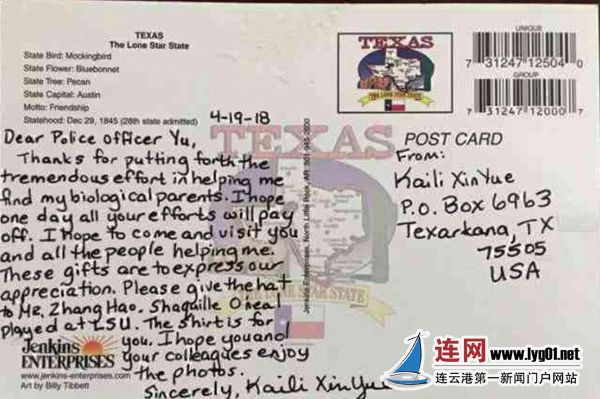 TEXAS
The Lone Star State
State Bird: Mockingbird
State Flower: Bluebonnet
State Tree: Pecan
State Capital: Austin
Motto: Friendship
Statehood: Dec 29, 1845 (28th state admitted)
4-19-18
Dear Police Officer Yu,
Thanks for putting forth the
tremendous effort in helping me
find my biological parents. I hope
one day all your efforts will pay
off. I hope to come and visit you
and all the people helping me.
These gifts are to express our
appreciation. Please give the hat
to Mr. Zhang Hao. Shaquille O'neal
played at LSU. The shirt is for
you. I hope you and
your colleagues enjoy
the photos.
Sincerely, Kaili XinYue
Jenkins
ENTERPRISES
www.jenkins-enterprises.com
Art by Billy Tibbett
TEXAS
THE LONE STAR STATE
Jenkins Enterprises, North Little Rock, AR
TEXAS
THE LONE STAR STATE
UNIQUE
7 31247 12504 0
GROUP
7 31247 12000 7
POST CARD
From:
Kaili XinYue
P.O. Box 6963
Texarkana, TX
75505
USA
连网 www.lyg01.net
连云港第一新闻门户网站